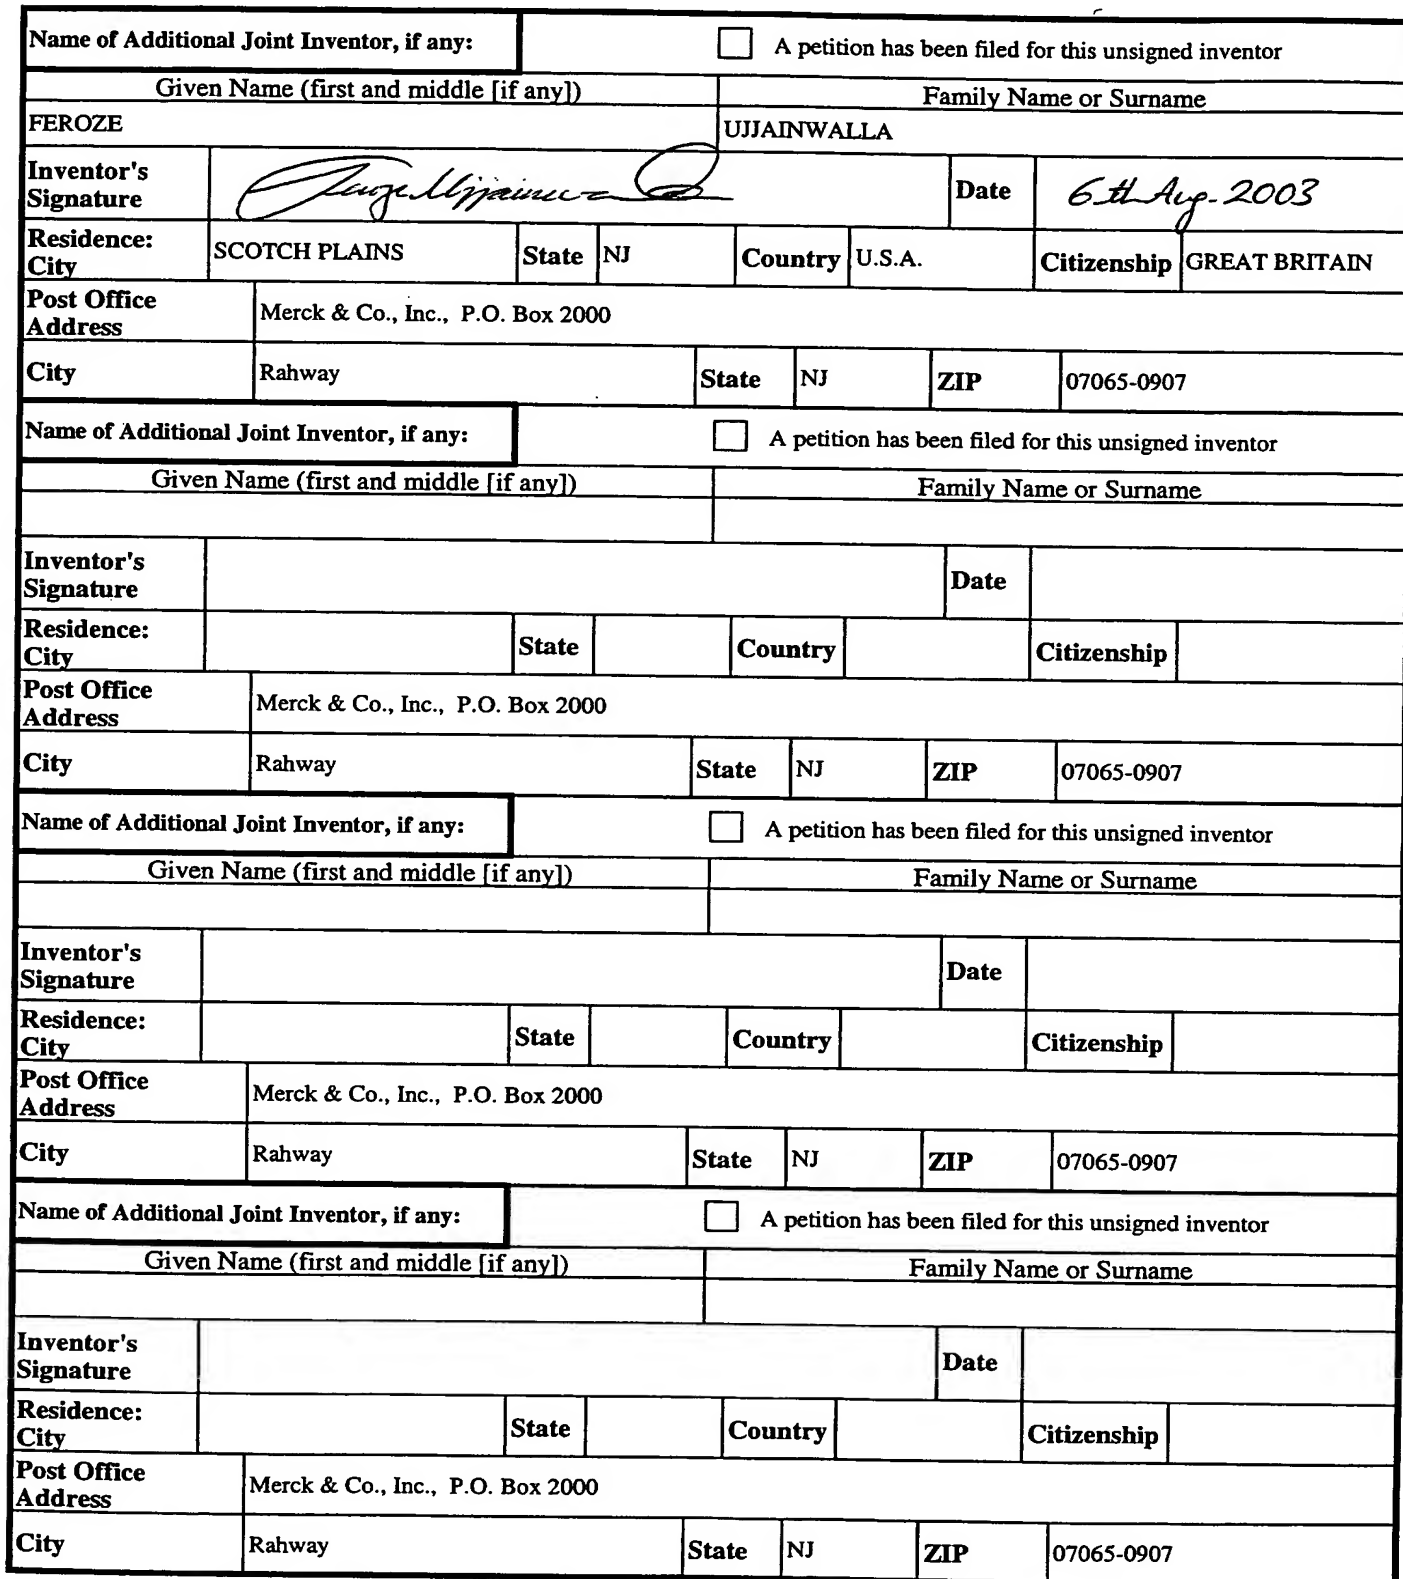 Name of Additional Joint Inventor, if any: A petition has been filed for this unsigned inventor
Given Name (first and middle [if any]) Family Name or Surname
FEROZE UJJAINWALLA
Inventor's Signature Feroze Ujjainwalla Date 6th Aug. 2003
Residence: City SCOTCH PLAINS State NJ Country U.S.A. Citizenship GREAT BRITAIN
Post Office Address Merck & Co., Inc., P.O. Box 2000
City Rahway State NJ ZIP 07065-0907
Name of Additional Joint Inventor, if any: A petition has been filed for this unsigned inventor
Given Name (first and middle [if any]) Family Name or Surname
Inventor's Signature Date
Residence: City State Country Citizenship
Post Office Address Merck & Co., Inc., P.O. Box 2000
City Rahway State NJ ZIP 07065-0907
Name of Additional Joint Inventor, if any: A petition has been filed for this unsigned inventor
Given Name (first and middle [if any]) Family Name or Surname
Inventor's Signature Date
Residence: City State Country Citizenship
Post Office Address Merck & Co., Inc., P.O. Box 2000
City Rahway State NJ ZIP 07065-0907
Name of Additional Joint Inventor, if any: A petition has been filed for this unsigned inventor
Given Name (first and middle [if any]) Family Name or Surname
Inventor's Signature Date
Residence: City State Country Citizenship
Post Office Address Merck & Co., Inc., P.O. Box 2000
City Rahway State NJ ZIP 07065-0907